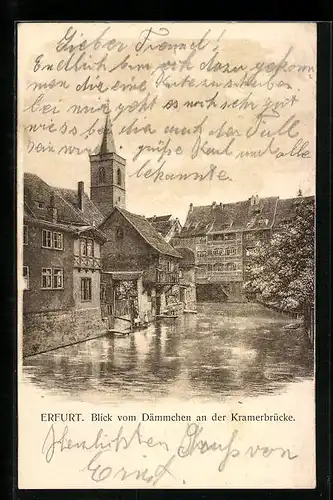 Lieber Freund!
Endlich bin ich dazu gekommen
men dir eine Karte zu schreiben
bei mir geht es noch sehr gut
wie es bei dir auch der Fall
sein wird grüße Karl und alle
bekannte.
ERFURT. Blick vom Dämmchen an der Kramerbrücke.
Herzlichsten Gruß von
Ernst